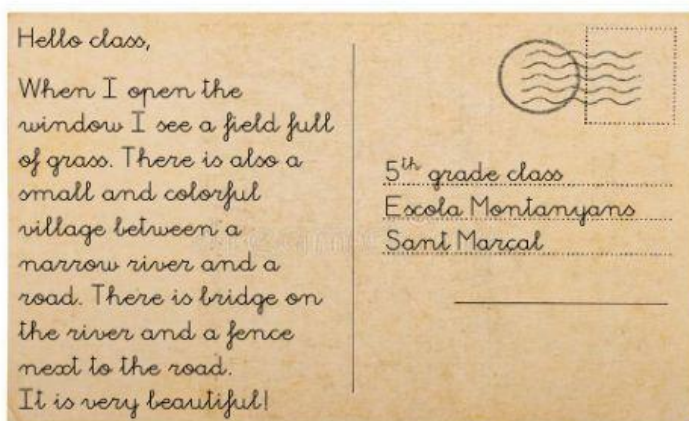 Hello class,
When I open the
window I see a field full
of grass. There is also a
small and colorful
village between a
narrow river and a
road. There is bridge on
the river and a fence
next to the road.
It is very beautiful!
5th grade class
Escola Montanyans
Sant Marçal